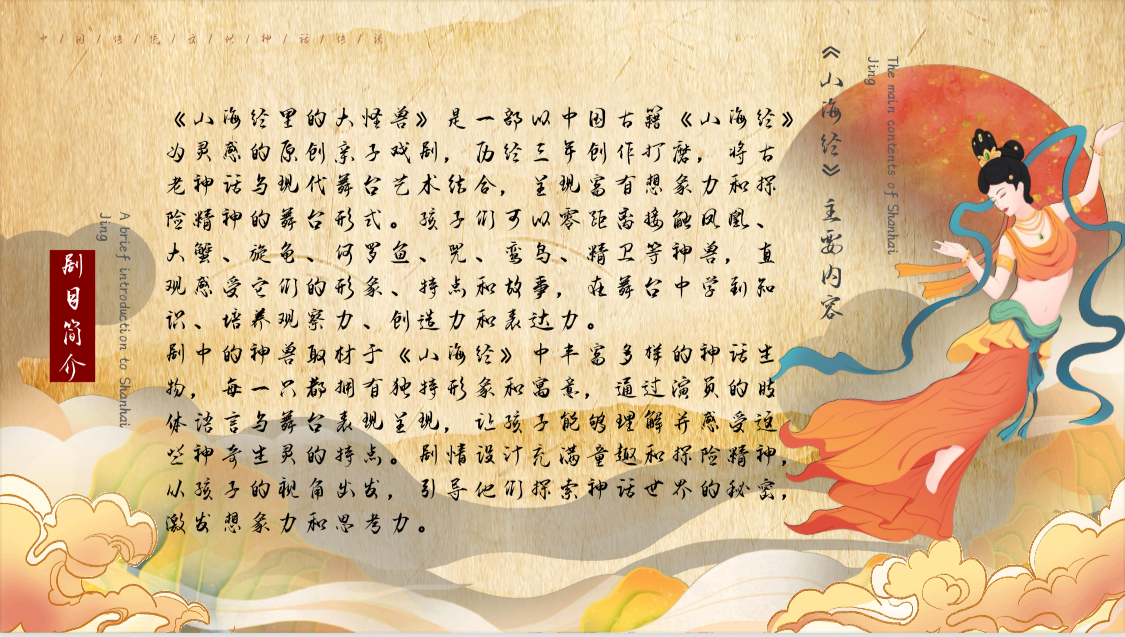 中/国/传/统/文/化/神/话/传/说
《山海经》主要内容
The main contents of Shanhai
Jing
剧目简介
A brief introduction to Shanhai
Jing
《山海经里的大怪兽》是一部以中国古籍《山海经》
为灵感的原创亲子戏剧，历经三年创作打磨，将古
老神话与现代舞台艺术结合，呈现富有想象力和探
险精神的舞台形式。孩子们可以零距离接触凤凰、
大蟹、旋龟、何罗鱼、兕、鸾鸟、精卫等神兽，直
观感受它们的形象、特点和故事，在舞台中学到知
识、培养观察力、创造力和表达力。
剧中的神兽取材于《山海经》中丰富多样的神话生
物，每一只都拥有独特形象和寓意，通过演员的肢
体语言与舞台表现呈现，让孩子能够理解并感受这
些神奇生灵的特点。剧情设计充满童趣和探险精神，
从孩子的视角出发，引导他们探索神话世界的秘密，
激发想象力和思考力。